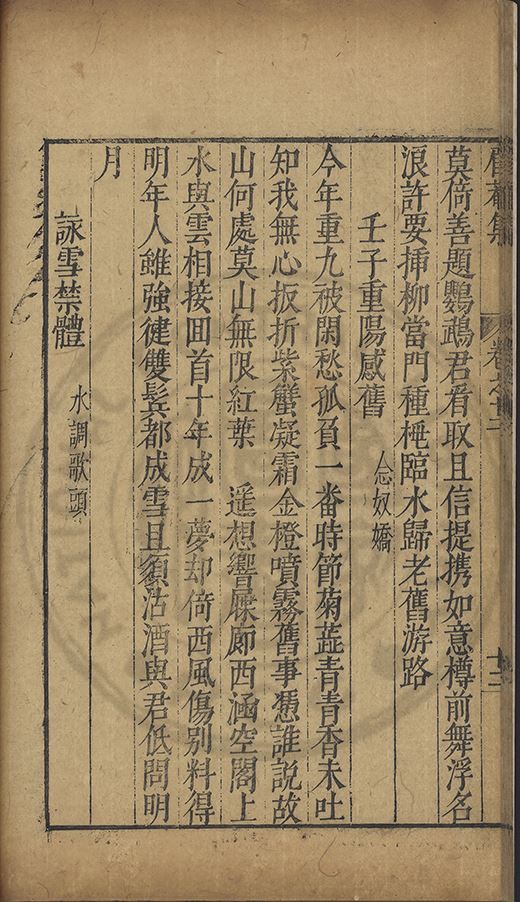 莫倚善題鸚鵡君看取且信提携如意樽前舞浮名
浪許要揷柳當門種桃臨水歸老舊游路
壬子重陽感舊 念奴嬌
今年重九被閑愁孤負一番時節菊蕋青青香未吐
知我無心扳折紫蟹凝霜金橙噴霧舊事憑誰說故
山何處莫山無限紅葉 遥想響屧廊西涵空閣上
水與雲相接回首十年成一夢却倚西風傷别料得
明年人雖強健雙鬂都成雪且須沽酒與君低問明
月
詠雪禁體 水調歌頭